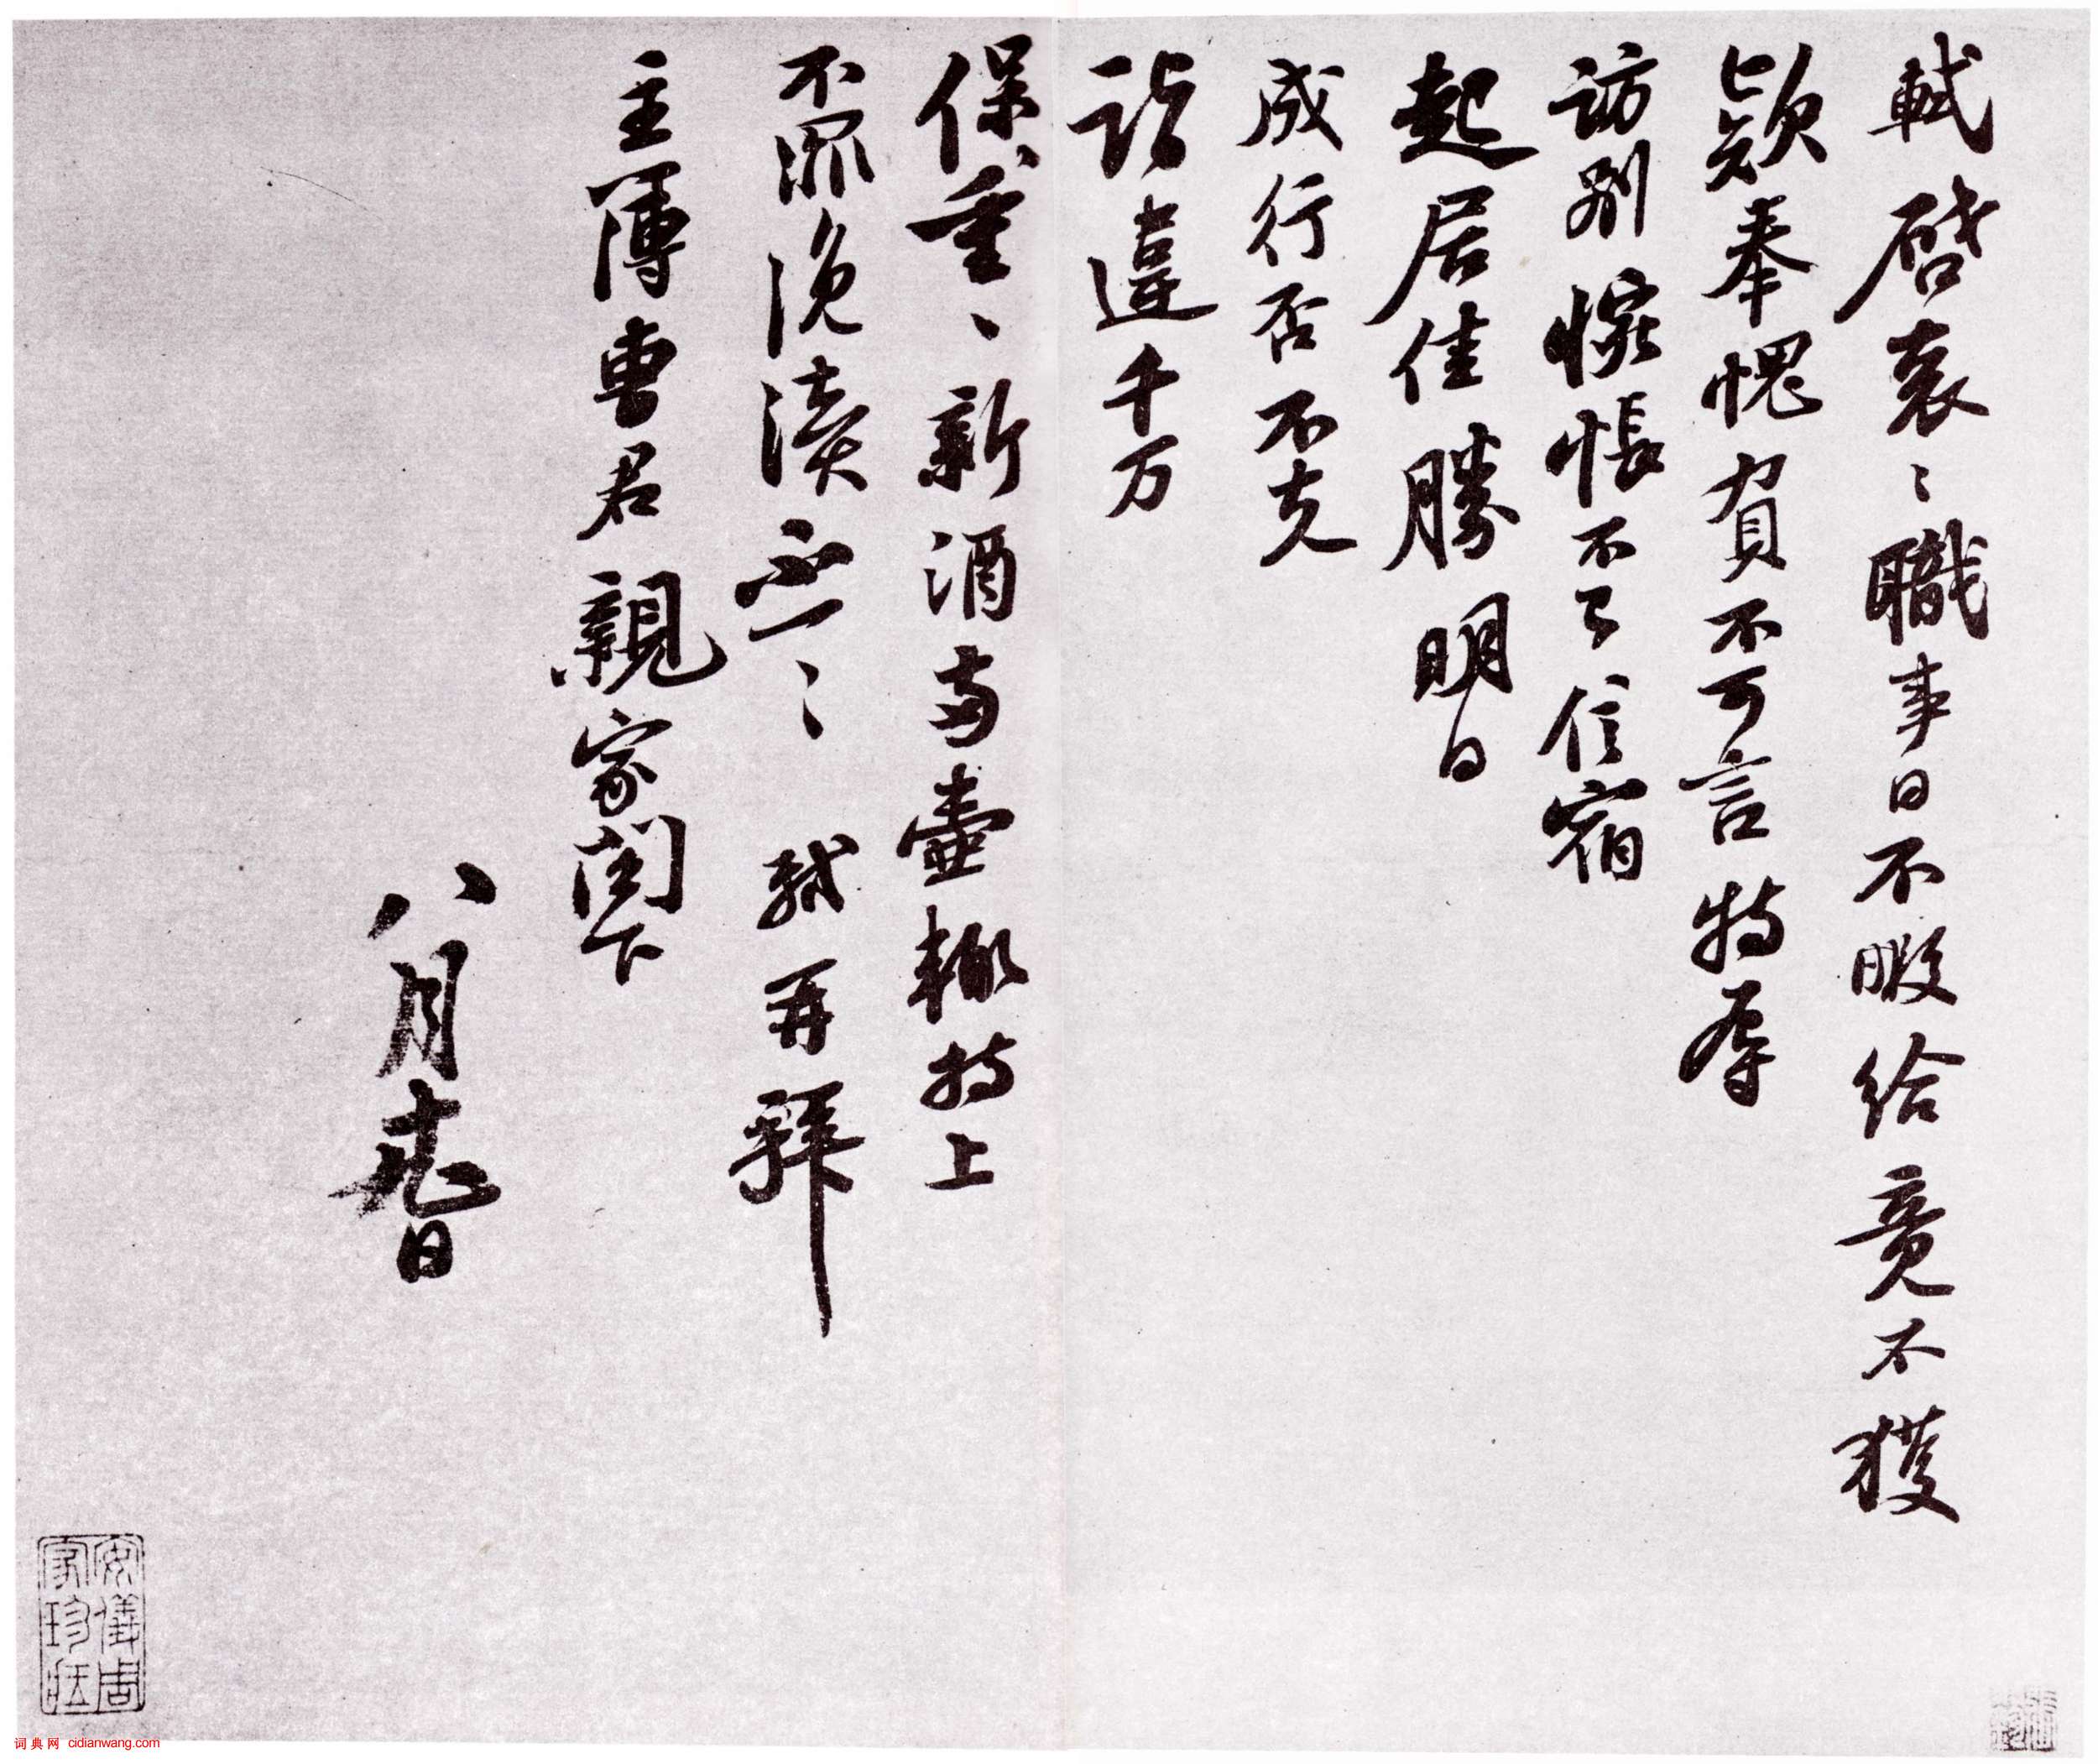 軾啓袞〻職事日不暇給竟不獲
款奉愧負不可言特辱
訪別惋悵不已信宿
起居佳勝明日
成行否不克
詣違千万
保重〻新酒兩壺輒持上
不罪浼瀆不一〻 軾再拜
主簿曹君親家閣下
八月日
安儀周家珍藏
词典网 cidianwang.com